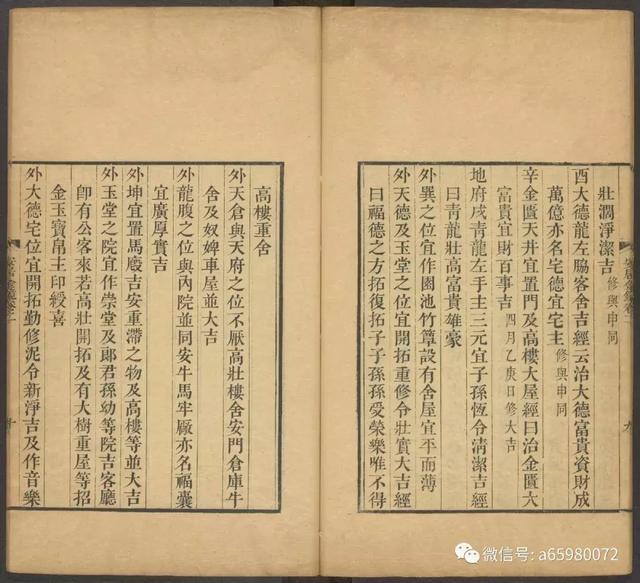 壯濶淨潔吉修與申同
酉大德龍左脇客舍吉經云治大德富貴資財成
萬億亦名宅德宜宅主修與申同
辛金匱天井宜置門及高樓大屋經曰治金匱大
富貴宜財百事吉四月乙庚日修大吉
地府戌青龍左手主三元宜子孫恆令清潔吉經
曰青龍壯高富貴雄豪
外巽之位宜作園池竹簟設有舍屋宜平而薄
外天德及玉堂之位宜開拓重修令壯實大吉經
曰福德之方拓復拓子子孫孫受榮樂唯不得
九
高樓重舍
外天倉與天府之位不厭高壯樓舍安門倉庫牛
舍及奴婢車屋並大吉
外龍腹之位與內院並同安牛馬牢厰亦名福囊
宜廣厚實吉
外坤宜置馬廄吉安重滯之物及高樓等並大吉
外玉堂之院宜作崇堂及郎君孫幼等院吉客廳
卽有公客來若高壯開拓及有大樹重屋等招
金玉寶帛主印綬喜
外大德宅位宜開拓勤修泥令新淨吉及作音樂
十
微信号: a65980072